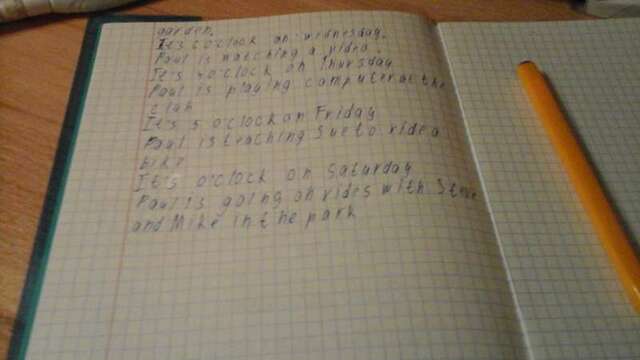 garden.
It's 6 o'clock on wednesday.
Paul is watching a video.
It's 4 o'clock on Thursday
Paul is playing computer at the
club
It's 5 o'clock on Friday
Paul is teaching Sue to ride a
bike
It's o'clock on Saturday
Paul is going on rides with Steve
and Mike in the park